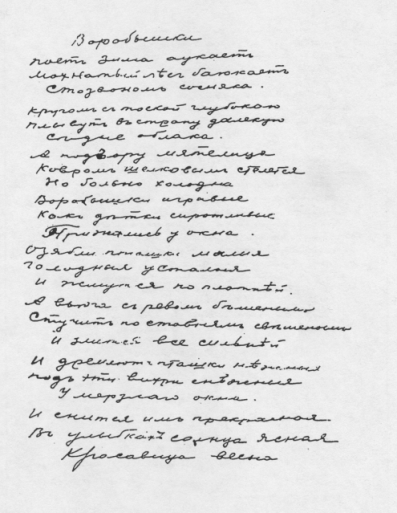 Воробышки
Поетъ зима аукаетъ
Мохнатый лѣсъ баюкаетъ
Стозвономъ сосняка.
Кругомъ съ тоской глубокою
Плывутъ въ страну далекую
Сѣдые облака.
А по двору мятелица
Ковромъ шелковымъ стелется
Но больно холодна
Воробышки игривые
Какъ дѣтки сиротливые
Прижались у окна.
Озябли пташки малыя
Голодныя усталыя
И жмутся поплотнѣй.
А вьюга съ ревомъ бѣшенымъ
Стучитъ по ставнямъ свѣшенымъ
И злится все сильнѣй
И дремлютъ пташки нѣжныя
подъ эти вихри снѣжныя
У мерзлаго окна.
И снится имъ прекрасная
Въ улыбкахъ солнца ясная
Красавица весна